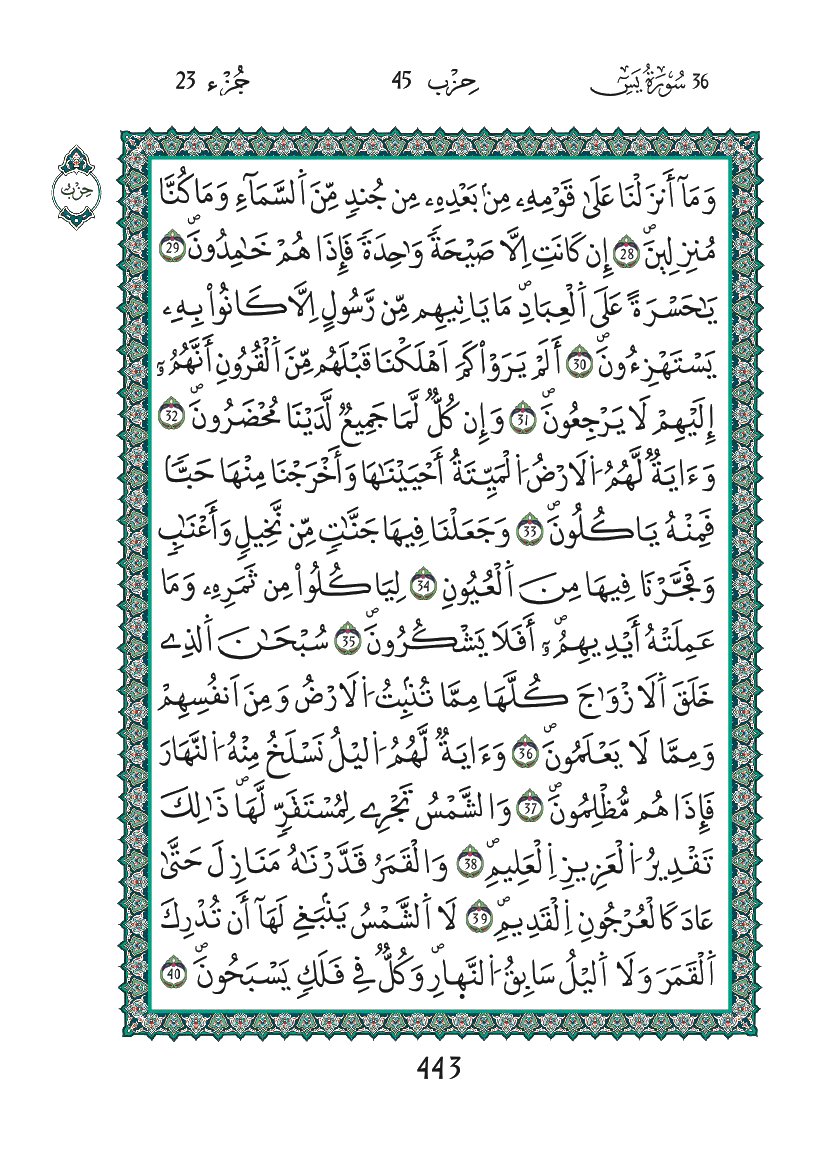 36 سُورَةُ يَسٓ حِزْب 45 جُزْء 23
حِزْب
وَمَآ أَنزَلْنَا عَلَىٰ قَوْمِهِۦ مِنۢ بَعْدِهِۦ مِن جُندٖ مِّنَ اَ۬لسَّمَآءِ وَمَا كُنَّا
مُنزِلِينَۖ 28 إِن كَانَتِ اِلَّا صَيْحَةٗ وَٰحِدَةٗ فَإِذَا هُمْ خَٰمِدُونَۖ 29
يَٰحَسْرَةً عَلَى اَ۬لْعِبَادِۖ مَا يَاتِيهِم مِّن رَّسُولٍ اِلَّا كَانُواْ بِهِۦ
يَسْتَهْزِءُونَۖ 30 أَلَمْ يَرَوْاْ كَمَ اَهْلَكْنَا قَبْلَهُم مِّنَ اَ۬لْقُرُونِ أَنَّهُمُۥٓ
إِلَيْهِمْ لَا يَرْجِعُونَۖ 31 وَإِن كُلّٞ لَّمَا جَمِيعٞ لَّدَيْنَا مُحْضَرُونَۖ 32
وَءَايَةٞ لَّهُمُ اُ۬لَارْضُ اُ۬لْمَيِّتَةُ أَحْيَيْنَٰهَا وَأَخْرَجْنَا مِنْهَا حَبّٗا
فَمِنْهُ يَاكُلُونَۖ 33 وَجَعَلْنَا فِيهَا جَنَّٰتٖ مِّن نَّخِيلٖ وَأَعْنَٰبٖ
وَفَجَّرْنَا فِيهَا مِنَ اَ۬لْعُيُونِ 34 لِيَاكُلُواْ مِن ثَمَرِهِۦ وَمَا
عَمِلَتْهُ أَيْدِيهِمُۥٓۖ أَفَلَا يَشْكُرُونَۖ 35 سُبْحَٰنَ اَ۬لذِے
خَلَقَ اَ۬لَازْوَٰجَ كُلَّهَا مِمَّا تُنۢبِتُ اُ۬لَارْضُ وَمِنَ اَنفُسِهِمْ
وَمِمَّا لَا يَعْلَمُونَۖ 36 وَءَايَةٞ لَّهُمُ اُ۬ليْلُ نَسْلَخُ مِنْهُ اُ۬لنَّهَارَ
فَإِذَا هُم مُّظْلِمُونَۖ 37 وَالشَّمْسُ تَجْرِے لِمُسْتَقَرّٖ لَّهَاۖ ذَٰلِكَ
تَقْدِيرُ اُ۬لْعَزِيزِ اِ۬لْعَلِيمِۖ 38 وَالْقَمَرُ قَدَّرْنَٰهُ مَنَازِلَ حَتَّىٰ
عَادَ كَالْعُرْجُونِ اِ۬لْقَدِيمِۖ 39 لَا اَ۬لشَّمْسُ يَنۢبَغِے لَهَآ أَن تُدْرِكَ
اَ۬لْقَمَرَ وَلَا اَ۬ليْلُ سَابِقُ اُ۬لنَّهِارِۖ وَكُلّٞ فِے فَلَكٖ يَسْبَحُونَۖ 40
443